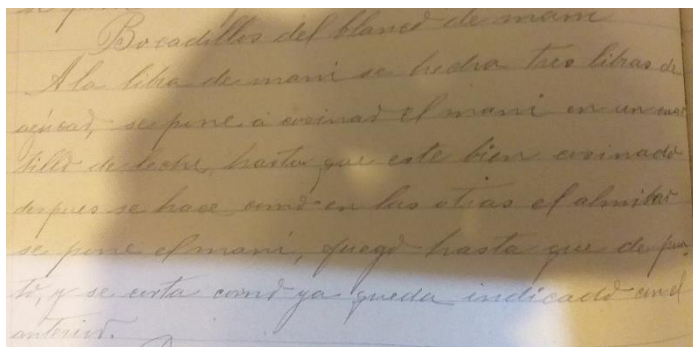 Bocadillos del blanco de mani
A la libra de mani se hechra tres libras de
azucar, se pone á cocinar el mani en un cuar
tillo de leche, hasta que este bien cocinado
despues se hace como en las otras el almibar
se pone el mani, fuego hasta que de pun
to, y se corta como ya queda indicado en el
anterior.